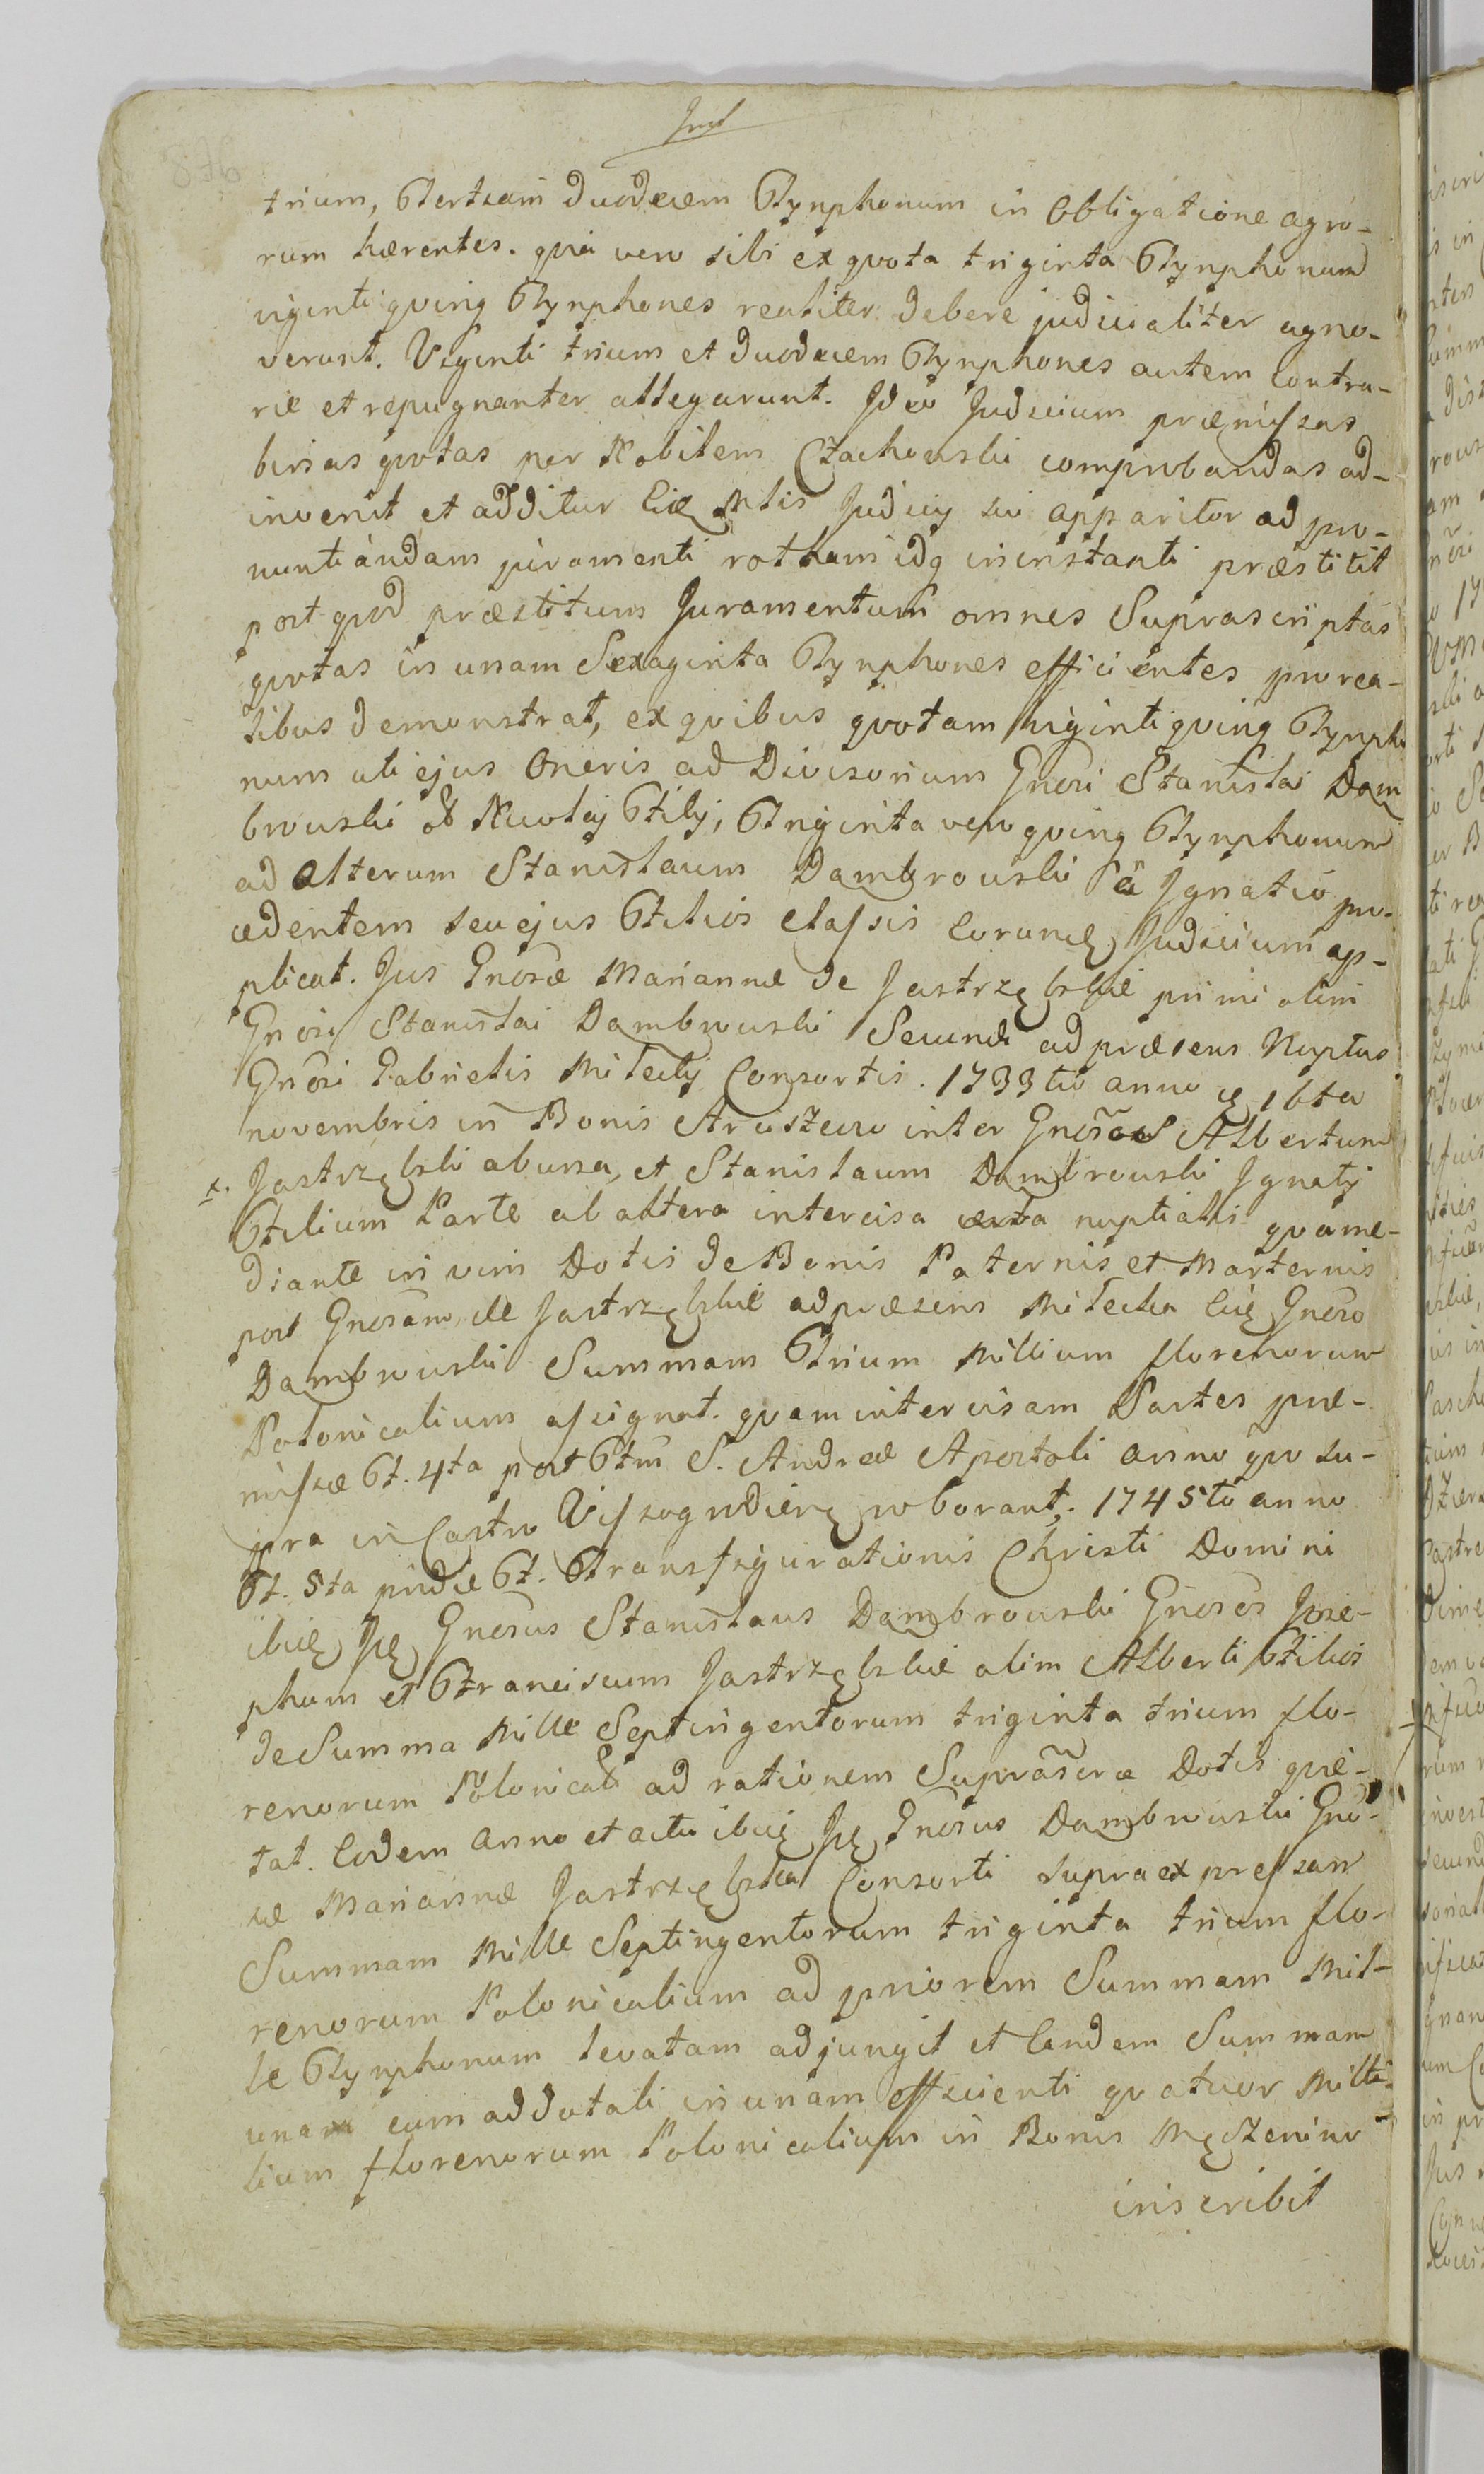 trium, Tertiam duodecem Tynphonum in Obligatione agro-
rum hærentes. qvia vero sibi ex qvota triginta Tynphonum
viginti qvinq Tynphones realiter debere judicialiter agno-
verunt. Viginti trium et duodecem Tynphones autem contra-
rie et repugnanter allegarunt. Ideo Judicium præmissas
binas qvotas per Nobilem Czachowski comprobandas ad-
invenit et additur Eiq Mlis Judicij sui apparitor ad pro-
nuntiandam juramenti rotham idq in instanti præstitit
post qvod præstitum Juramentum omnes Suprascriptas
qvotas in unam Sexaginta Tynphones efficientes pro rea-
libus demonstrat, ex qvibus qvotam viginti qvinq Tynpho
num uti ejus Oneris ad Divisorium Gnosi Stanislai Dam
browski ol Nicolaj Filij, Triginta vero qvinq Tynphonum
ad Alterum Stanislaum Dambrowski ä Ignatio pro-
cedentem seu ejus Filios elapsis Corumq Judicium ap-
plicat. Jus Gnosæ Mariannæ de Jastrzębskie primi olim
Gnosi Stanislai Dambrowski Secundi ad præsens Nuptus
Gnosi Gabrielis Milecky Consortis. 1733tio anno q 16ta
novembris in Bonis Aruszewo inter Gnosos Albertum
x. Jastrzębski ab una, et Stanislaum Dambrowski Ignatij
Filium Parte ab altera intercisa nuptialis qvame-
diante in vim Dotis de Bonis Paternis et Marternis
post Gnosam de Jastrzębskie ad præsens Milecka Eiq Gnoso
Dambrowski Summam Trium Millium florenorum
Polonicalium assignat. qvam intercisam Partes præ-
missæ F. 4ta post Ftm S. Andreæ Apostoli anno qvo su-
pra in Castro Vissogrodien roborant. 1745to anno
F. 5ta pridie F. Transfigurationis Christi Domini
ibiq Jq Gnosus Stanislaus Dambrowski Gnosos Jose-
phum et Franciscum Jastrzębskie olim Alberti Filios
de Summa Mille Septingentorum triginta trium flo-
renorum Polonicali ad rationem Suprascræ Dotis qvie-
tat. Eodem anno et actu ibiq Jq Gnosus Dambrowski Gno-
sæ Mariannæ Jastrzębska Consorti supra expressam
Summam Mille Septingentorum triginta trium flo-
renorum Polonicalium ad priorem Summam Mil-
le Tynphonum levatam adjungit et Eandem Summam
una cum ad dotali in unam efficienti qvatuor Milli-
lium florenorum Polonicalium in Bonis Męczenino
inscribit